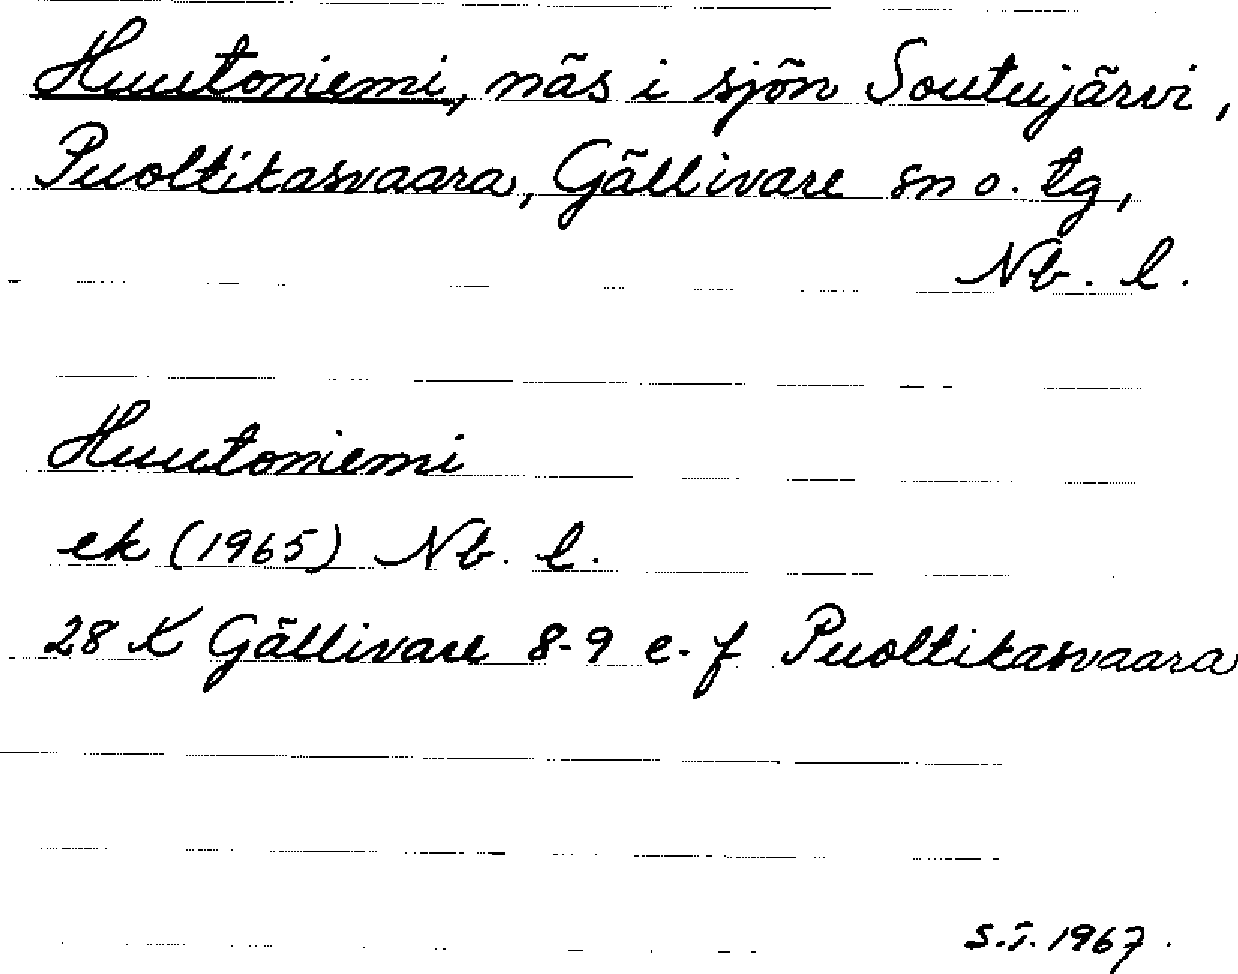 Huutoniemi, näs i sjön Soutujärvi,
Puoltikasvaara, Gällivare sn o. tg,
Nb. l.
Huutoniemi
ek (1965) Nb. l.
28 K Gällivare 8-9 e-f Puoltikasvaara
S.I. 1967.